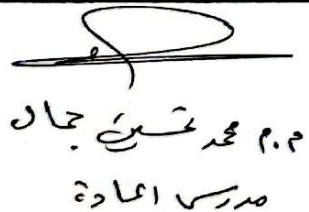 م.م محمد تحسين جمال
مدرس المادة